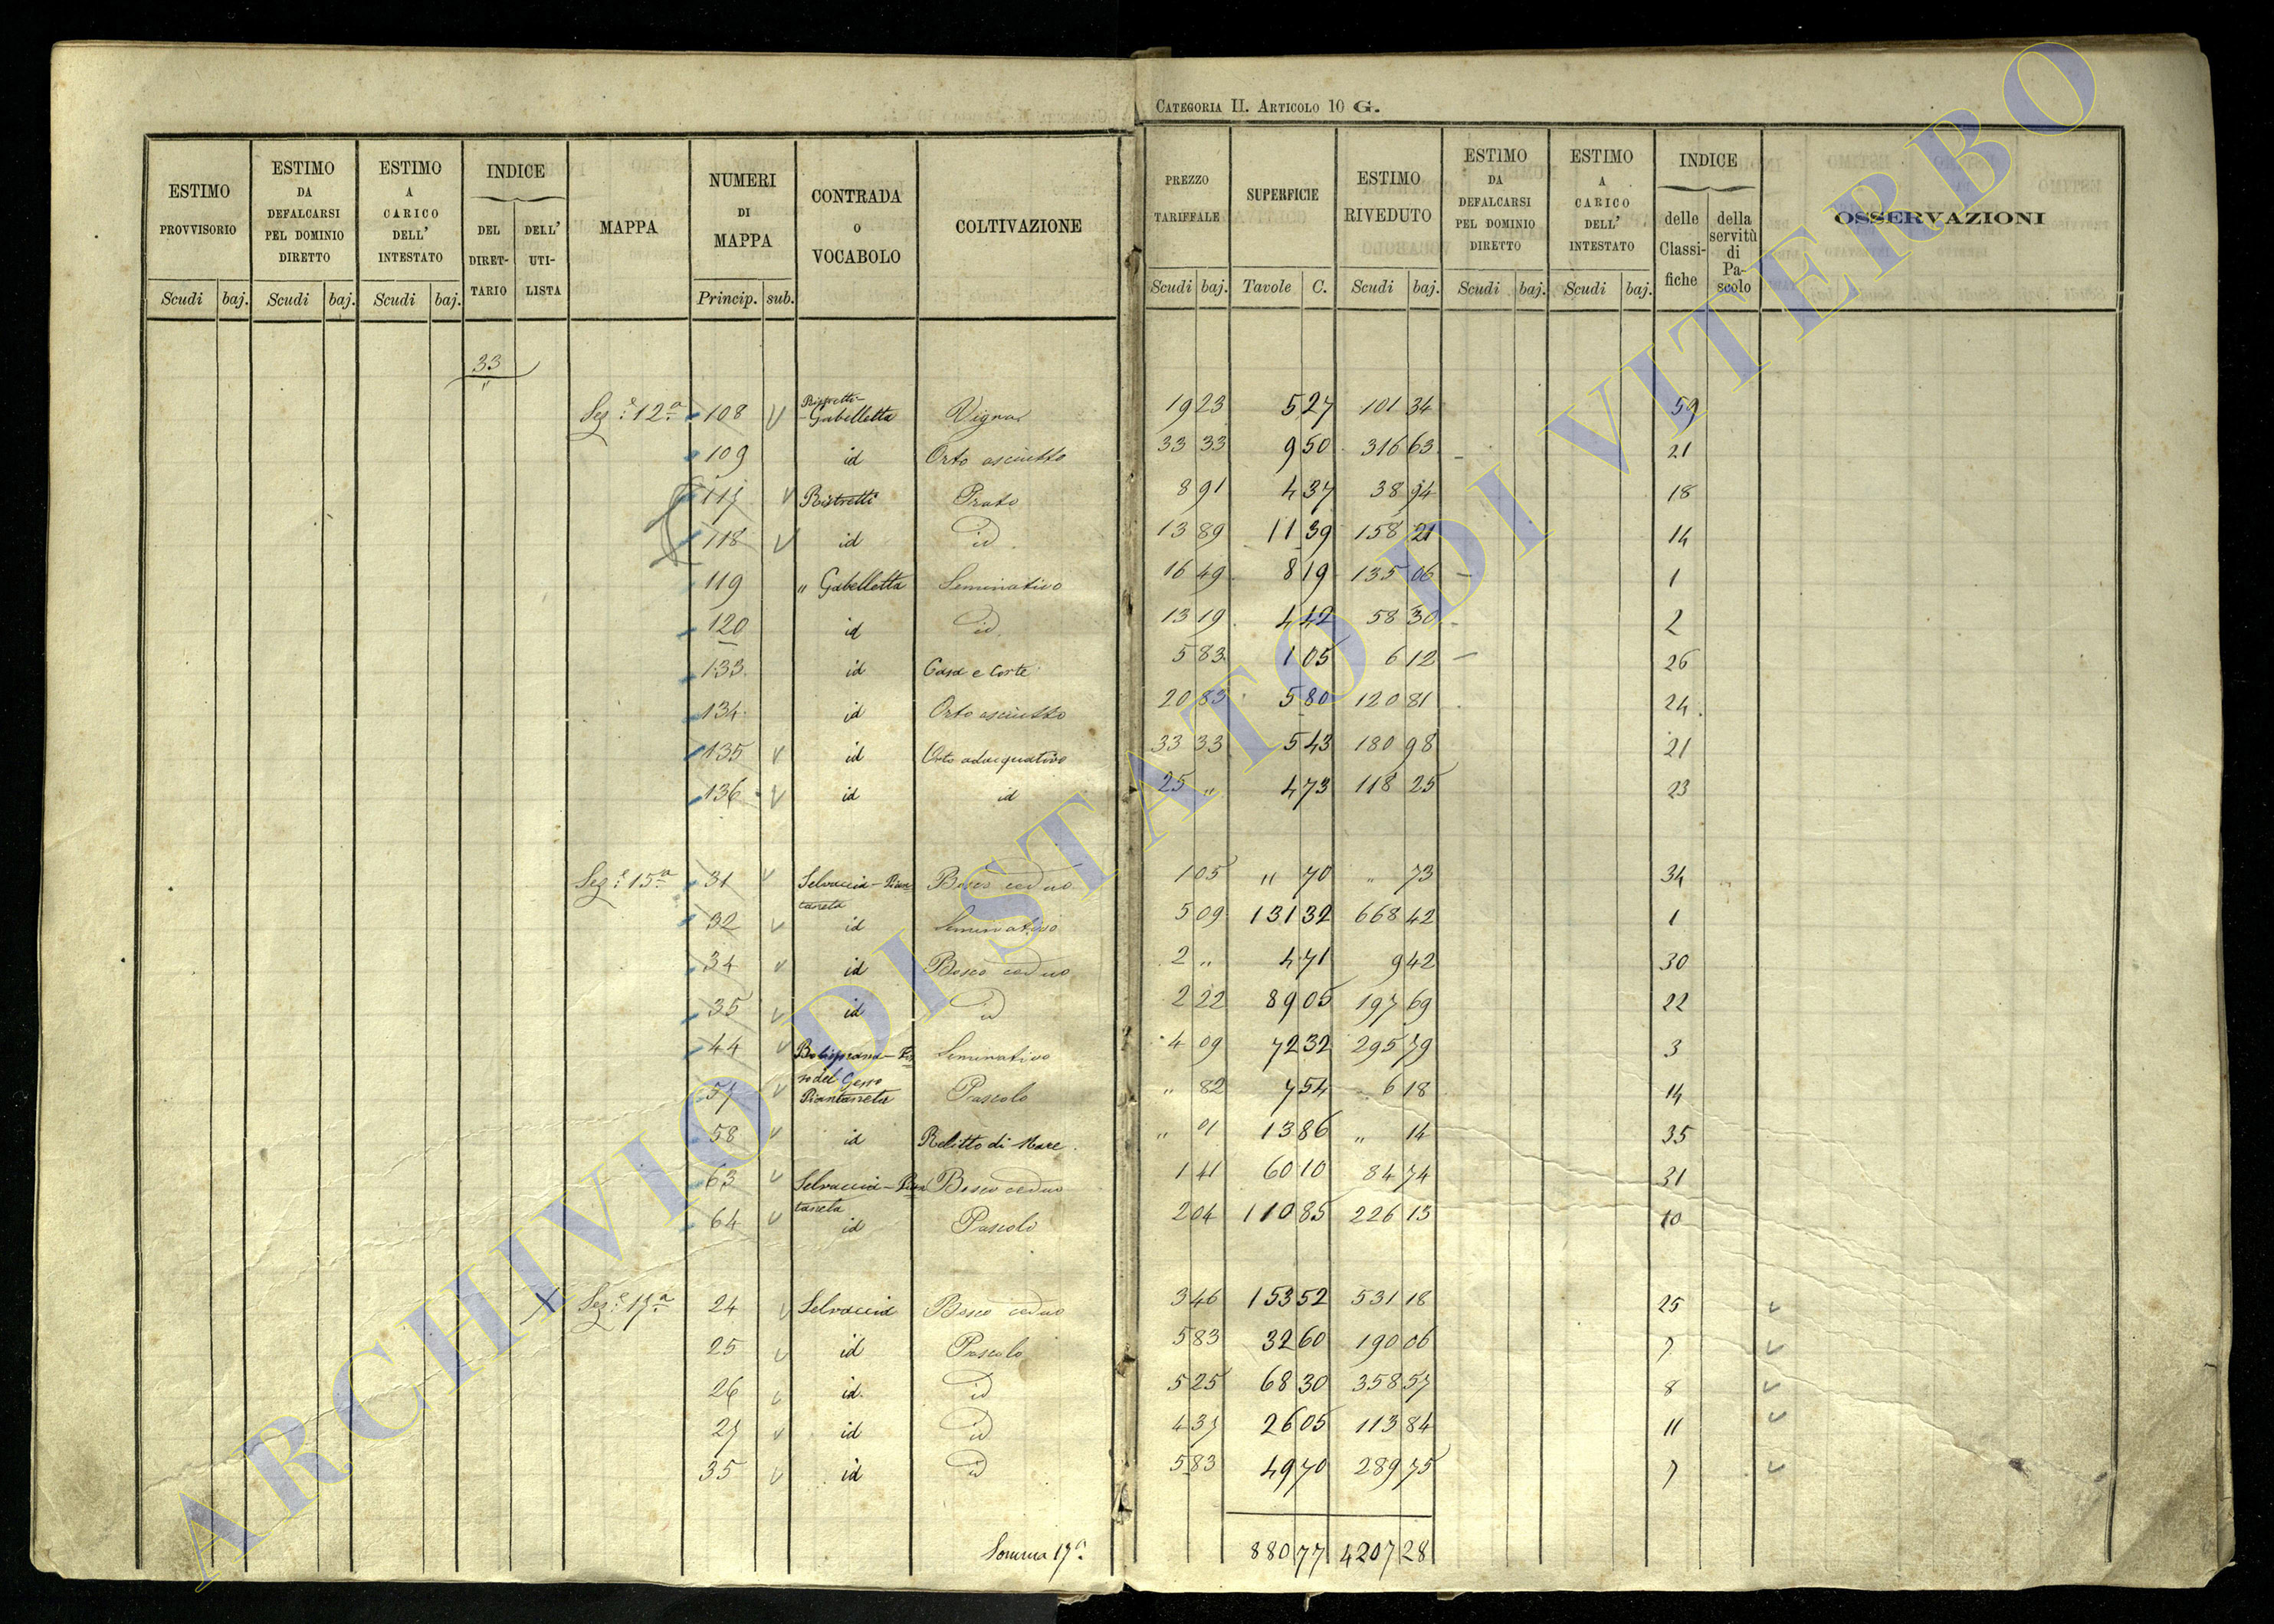 CATEGORIA II. ARTICOLO 10 G.
ESTIMO PROVVISORIO Scudi baj. ESTIMO DA DEFALCARSI PEL DOMINIO DIRETTO Scudi baj. ESTIMO A CARICO DELL' INTESTATO Scudi baj. INDICE DEL DIRET-TARIO DELL' UTI-LISTA MAPPA NUMERI DI MAPPA Princip. sub. CONTRADA o VOCABOLO COLTIVAZIONE PREZZO TARIFFALE Scudi baj. SUPERFICIE Tavole C. ESTIMO RIVEDUTO Scudi baj. ESTIMO DA DEFALCARSI PEL DOMINIO DIRETTO Scudi baj. ESTIMO A CARICO DELL' INTESTATO Scudi baj. INDICE delle Classi-fiche della servitù di Pa-scolo OSSERVAZIONI
33
"
Sez.e 12a 108 Ristretti-Gabelletta Vigna 19 23 5 27 101 34 59
109 id Orto asciutto 33 33 9 50 316 63 21
117 Ristretti Prato 8 91 4 37 38 94 18
118 id id 13 89 11 39 158 21 14
119 " Gabelletta Seminativo 16 49 8 19 135 06 1
120 id id 13 19 4 42 58 30 2
133 id Casa e Corte 5 83 1 05 6 12 26
134 id Orto asciutto 20 83 5 80 120 81 24
135 id Orto adacquativo 33 33 5 43 180 98 21
136 id id 25 " 4 73 118 25 23
Sez.e 15a 31 Selvaccia-Piantaneta Bosco ceduo 1 05 " 70 " 73 34
32 id Seminativo 5 09 131 32 668 42 1
34 id Bosco ceduo 2 " 4 71 9 42 30
35 id id 2 22 89 05 197 69 22
44 Seminativo 4 09 72 32 295 79 3
57 Piantaneta Pascolo " 82 7 54 6 18 14
58 id Relitto di Mare " 01 13 86 " 14 35
63 Selvaccia-Piantaneta Bosco ceduo 1 41 60 10 84 74 31
64 id Pascolo 2 04 110 85 226 13 10
Sez.e 17a 24 Selvaccia Bosco ceduo 3 46 153 52 531 18 25
25 id Pascolo 5 83 32 60 190 06 7
26 id id 5 25 68 30 358 57 8
27 id id 4 37 26 05 113 84 11
35 id id 5 83 49 70 289 75 7
Somma 17a 880 77 4207 28
ARCHIVIO DI STATO DI VITERBO